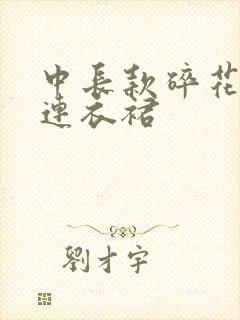 中長款碎花
連衣裙
劉才宇